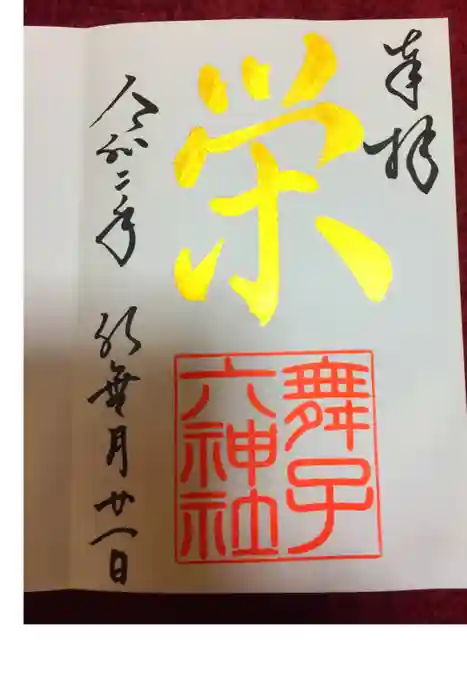 奉拝
栄
舞子
六神社
令和二年 神無月廿一日